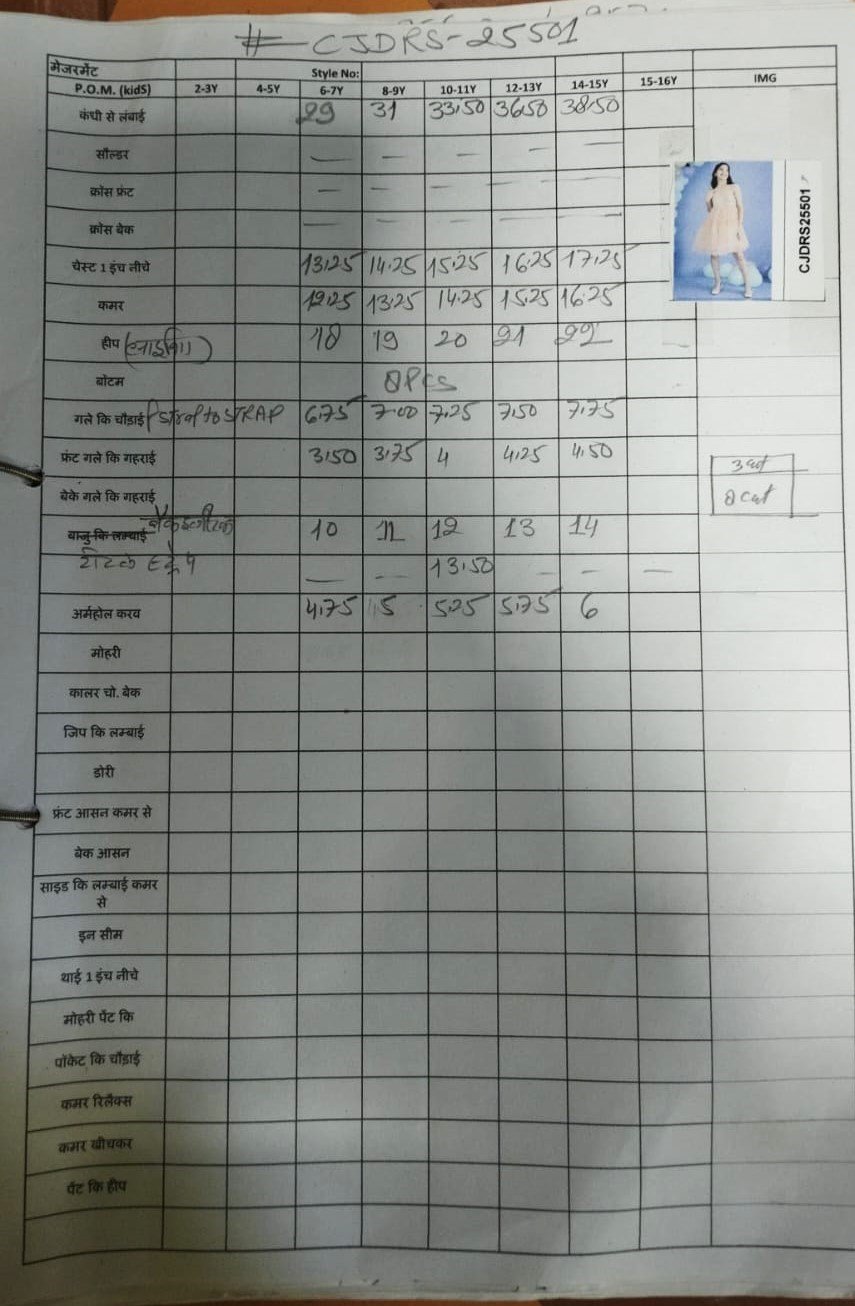 # CJDRS-25501
मेजरमेंट Style No:
P.O.M. (kidS) 2-3Y 4-5Y 6-7Y 8-9Y 10-11Y 12-13Y 14-15Y 15-16Y IMG
कंधी से लंबाई 29 31 33.50 36.50 38.50
सौल्डर — — — — —
क्रोस फ्रंट — — — — —
क्रोस बेक — — — — —
CJDRS25501
चेस्ट 1 इंच नीचे 13.25 14.25 15.25 16.25 17.25
कमर 12.25 13.25 14.25 15.25 16.25
हीप 18 19 20 21 22
बॉटम PCS
गले कि चौड़ाई STRAP to STRAP 6.75 7.00 7.25 7.50 7.75
फ्रंट गले कि गहराई 3.50 3.75 4 4.25 4.50
बेके गले कि गहराई
बाजु कि लम्बाई 10 11 12 13 14
— — 13.50 — — —
अर्महोल करव 4.75 5 5.25 5.75 6
मोहरी
कालर चो. बेक
जिप कि लम्बाई
डोरी
फ्रंट आसन कमर से
बेक आसन
साइड कि लम्बाई कमर
से
इन सीम
थाई 1 इंच नीचे
मोहरी पेंट कि
पॉकेट कि चौड़ाई
कमर रिलैक्स
कमर खीचकर
पेंट कि हीप